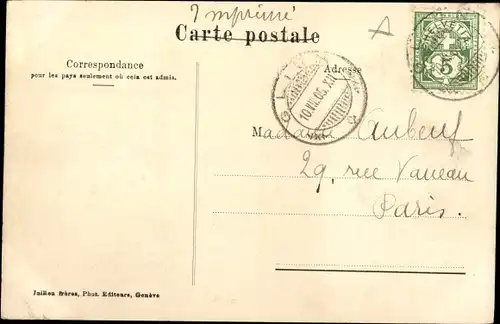 Imprimé
Carte postale
A
5
Correspondance
pour les pays seulement où cela est admis.
Adresse
10.VII.05.XII
Madame Aubeuf
29, rue Vaneau
Paris.
Jullien frères, Phot. Editeurs, Genève